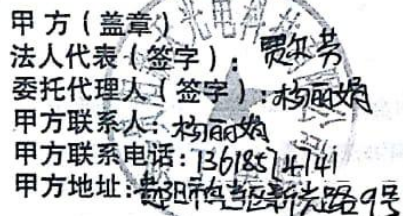 甲方（盖章）
光电科技
法人代表（签字）：贾尔芳
委托代理人（签字）：杨丽娟
甲方联系人：杨丽娟
甲方联系电话：13618574741
甲方地址：贵阳市乌当区新光路9号